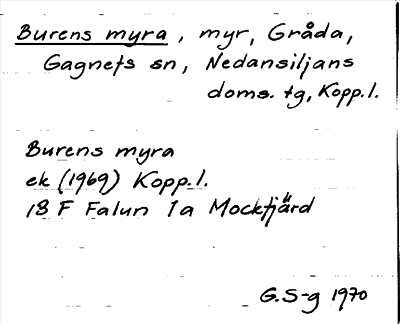 Burens myra, myr, Gråda,
Gagnefs sn, Nedansiljans
doms. tg, Kopp.l.
Burens myra
ek (1969) Kopp.l.
13 F Falun 1a Mockfjärd
G.S-g 1970